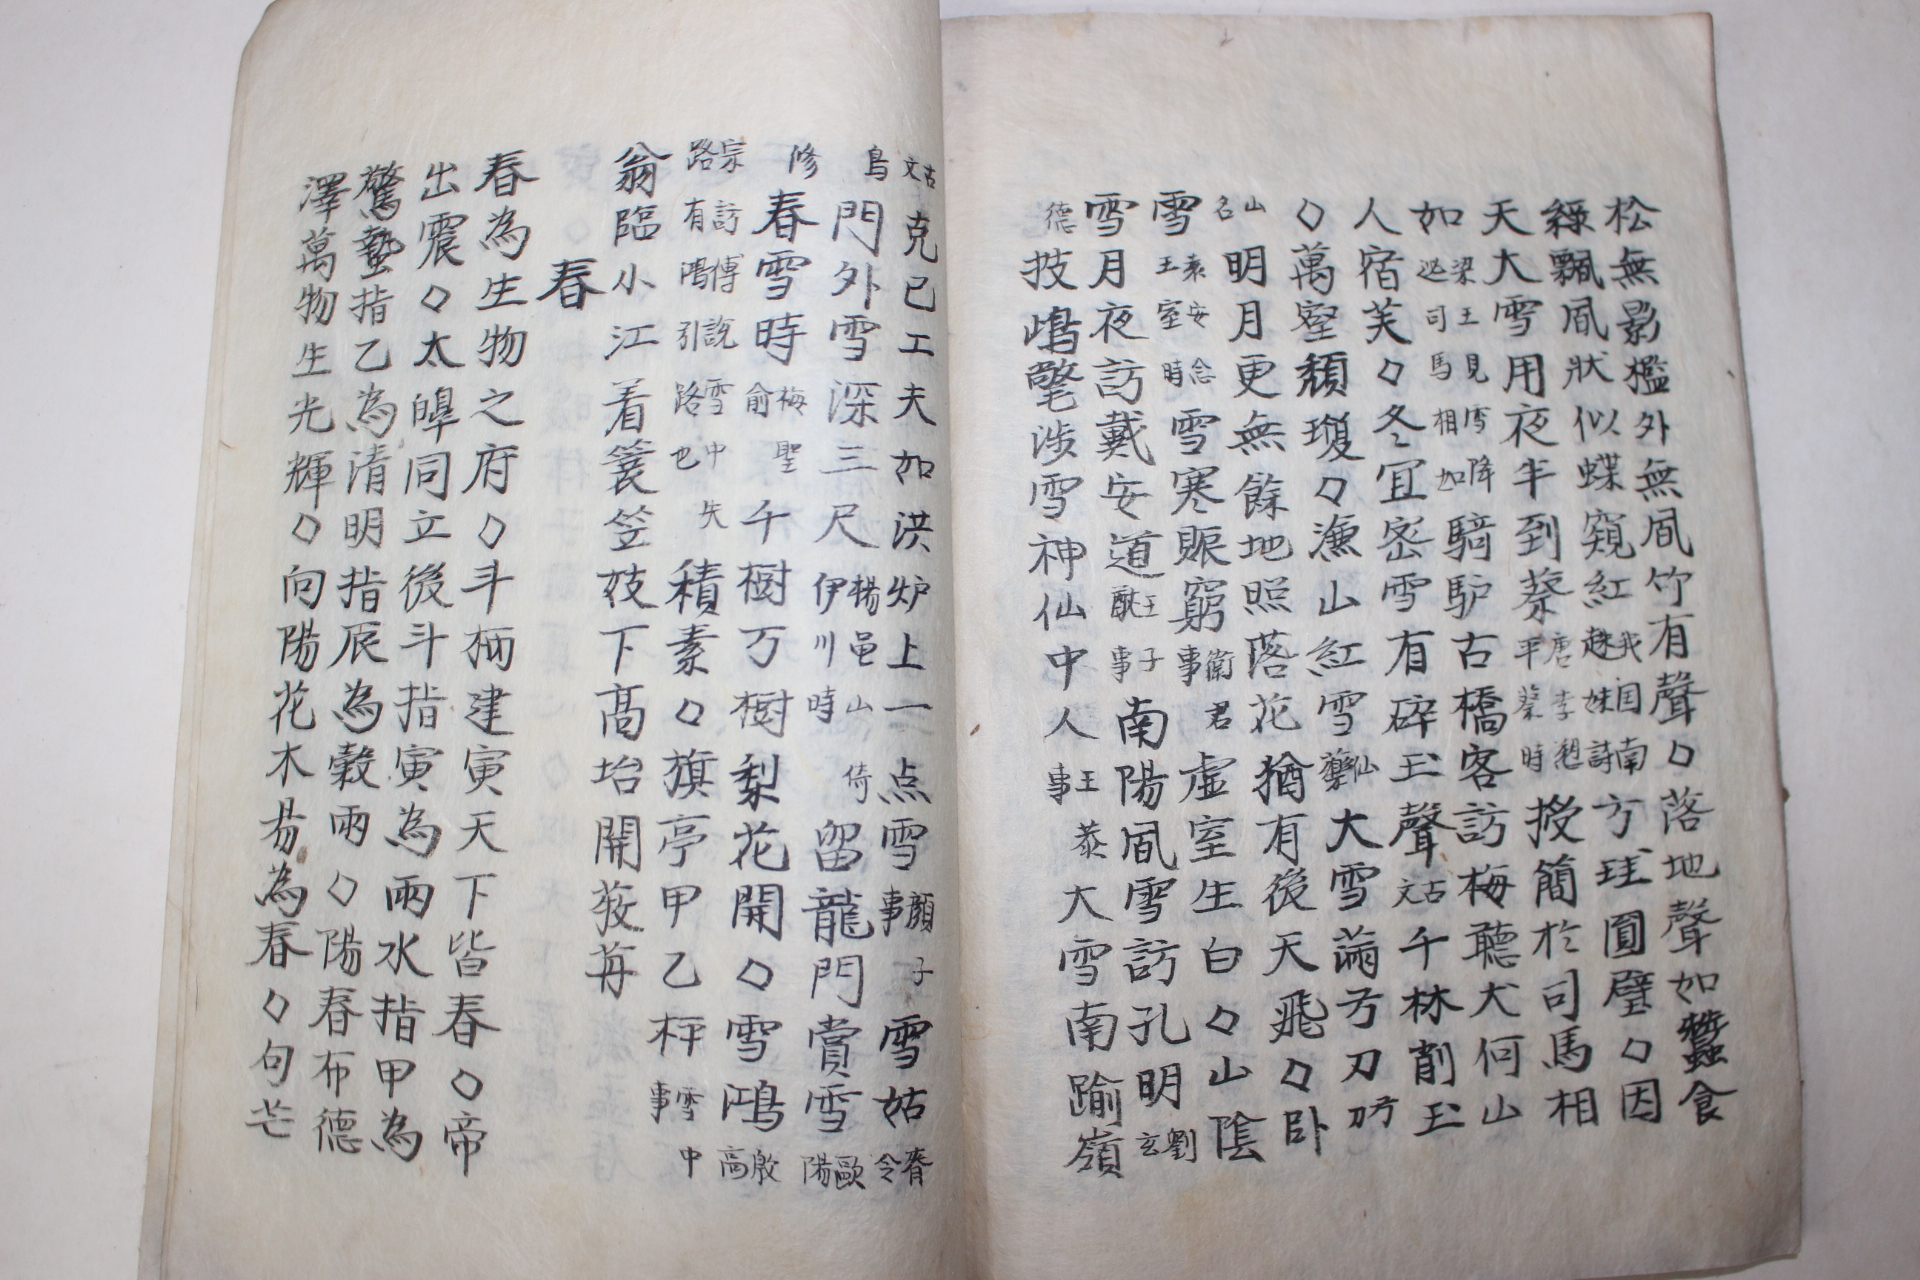 松無影檻外無風竹有聲〇落地聲如蠶食
綠飄風狀似蝶窺紅我国南越妹詩方珪圓璧〇因
天大雪用夜半到蔡唐李愬平蔡時授簡於司馬相
如梁王見雪降迟司馬相如騎驴古橋客訪梅聽犬何山
人宿芙〇冬宜密雪有碎玉聲古文千林削玉
〇萬壑頹瓊〇漁山紅雪大雪滿弓刀
山名明月更無餘地照落花猶有後天飛〇臥
雪袁安念王室時雪寒賑窮衛君事虛室生白〇山陰
雪月夜訪戴安道王子猷事南陽風雪訪孔明劉玄
德技鳩氅涉雪神仙中人王恭事大雪南踰嶺
古文克已工夫如洪炉上一点雪顔子事雪姑脊令
鳥門外雪深三尺楊龜山伊川時倚留龍門賞雪歐陽
修春雪時梅聖俞千樹万樹梨花開〇雪鴻殷高
宗訪傅說雪中失路有鴻引路也積素〇旗亭甲乙枰雪中事
翁臨小江着簑笠妓下高坮開
春
春為生物之府〇斗柄建寅天下皆春〇帝
出震〇太皡同立後斗指寅為雨水指甲為
驚蟄指乙為清明指辰為穀雨〇陽春布德
澤萬物生光輝〇向陽花木昜為春〇句芒